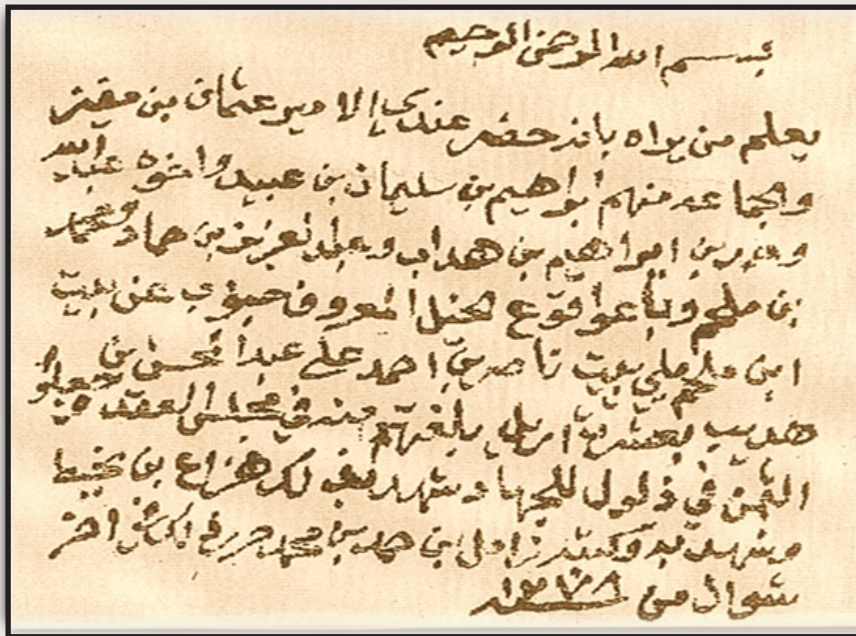 بسم الله الرحمن الرحيم
يعلم من يراه بانه حضر عندي الامير عثمان بن
والجماعه منهم ابراهيم بن سليمان بن عبيد واخوه عبدالله
بن ابراهيم بن هداب وعبدالعزيز بن حماد ومحمد
بن ملحم وباعوا النخل المعروف جنوب عن بيت
ابن ملحم بيت ناصر بن احمد على عبدالمحسن بن
هديب بعشرين اريل بلغتهم منه في مجلس العقد وجعلوا
الثمن في ذلول للجهاد شهد على ذلك هزاع بن
وشهد به وكتبه زامل بن حمد بن محمد حرر في اخر
شوال من ١٢٧٨